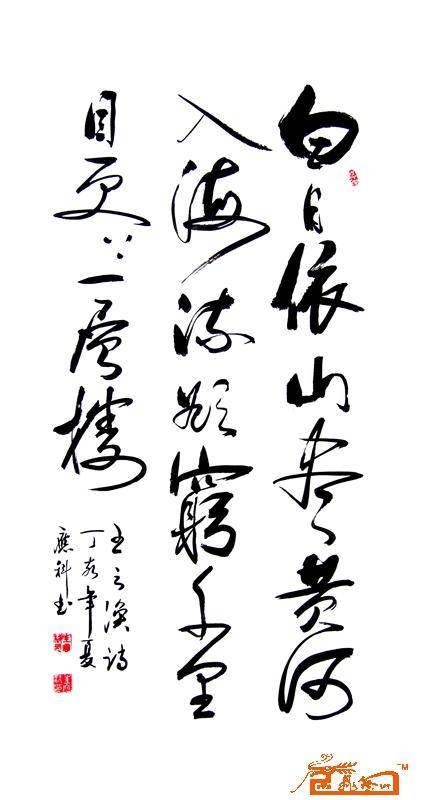 白日依山尽黄河
入海流欲窮千里
目更上一層樓
王之渙詩
丁亥年夏
應科书